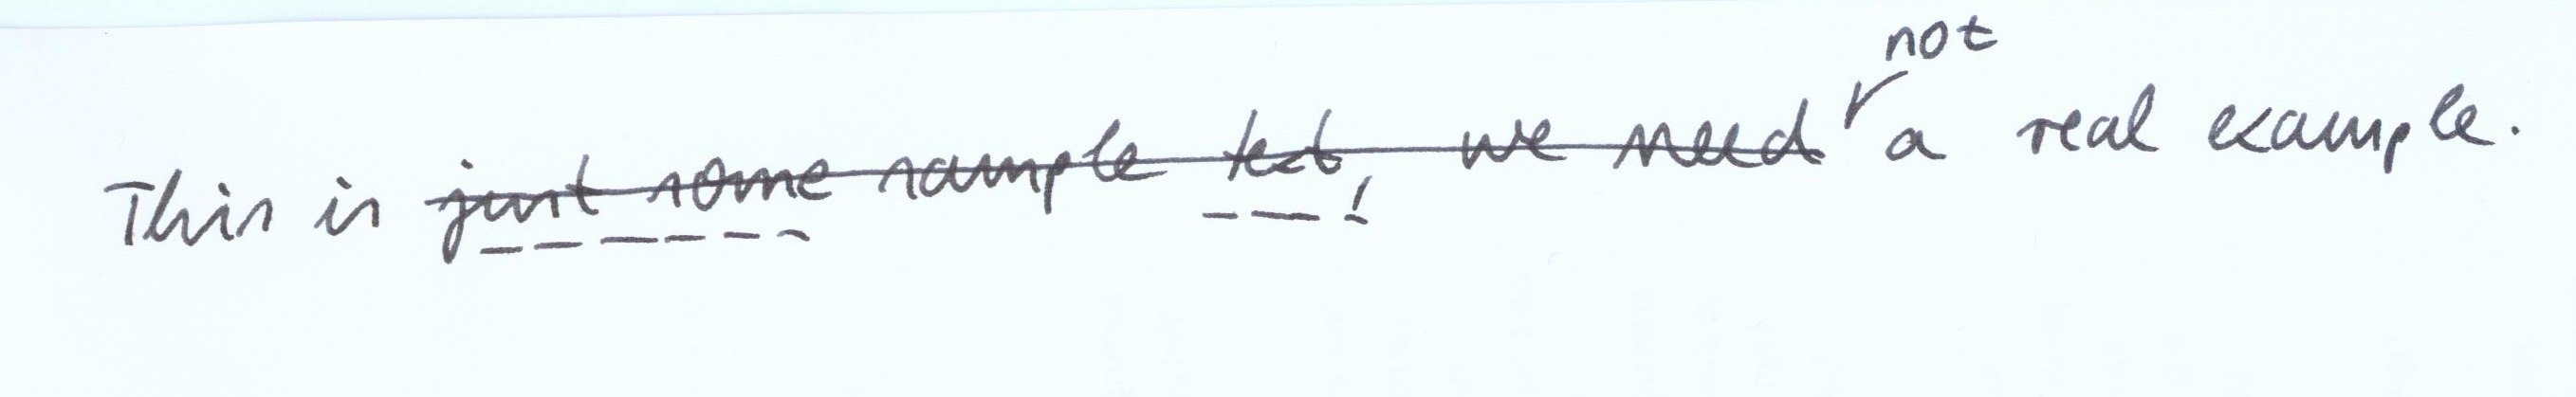 This is just some sample text, we need not a real example.